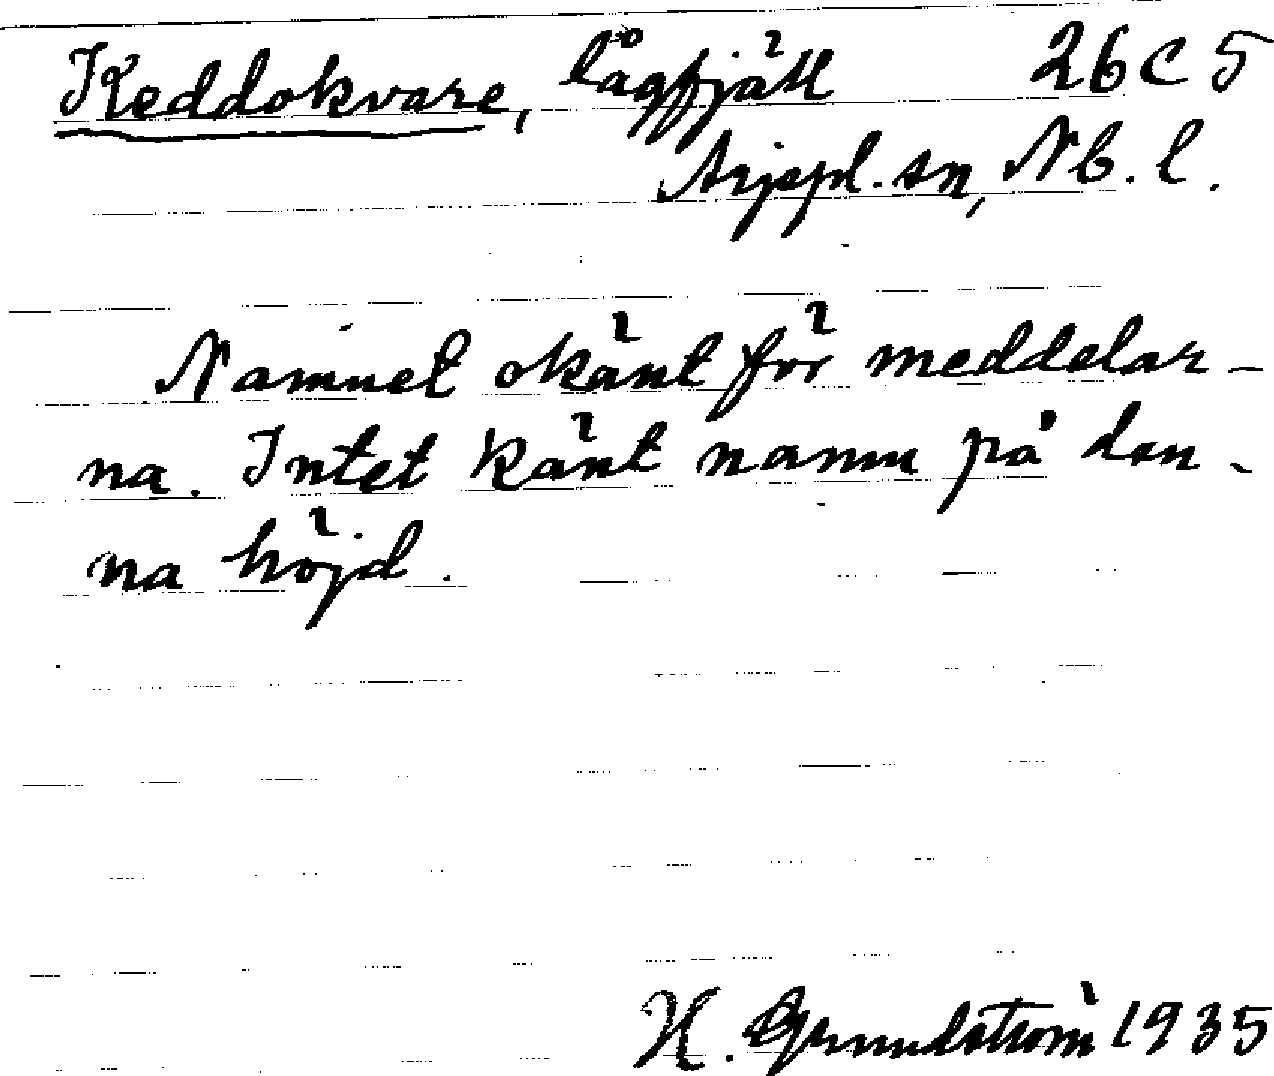 Keddokvare, lågfjäll 26 C 5
Arjepl. sn, Nb. l.
Namnet okänt för meddelar-
na. Intet känt namn på den-
na höjd.
H. Grundström 1935